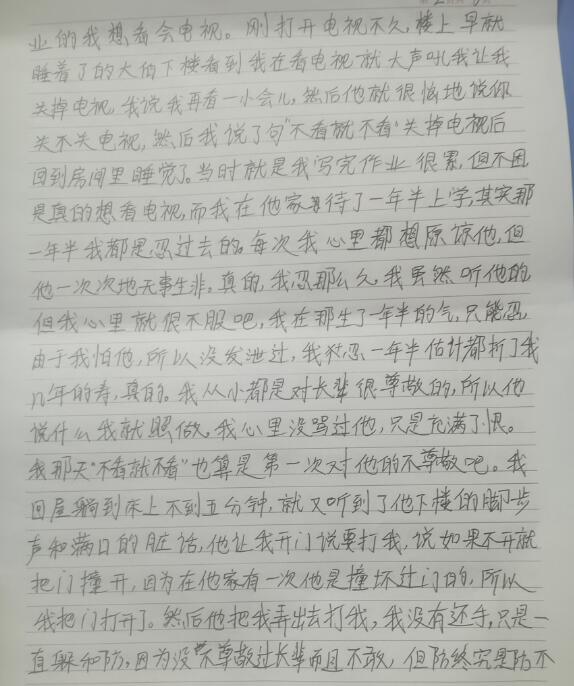 业的我想看会电视。刚打开电视不久,楼上早就
睡着了的大伯下楼看到我在看电视就大声吼我让我
关掉电视,我说我再看一小会儿,然后他就很恼地说你
关不关电视,然后我说了句“不看就不看”关掉电视后
回到房间里睡觉了。当时就是我写完作业很累,但不困
是真的想看电视,而我在他家待了一年半上学,其实那
一年半我都是忍过去的。每次我心里都想原谅他,但
他一次次地无事生非。真的,我忍那么久,我虽然听他的
但我心里就很不服吧,我在那生了一年半的气,只能忍,
由于我怕他,所以没发泄过,我犹忍一年半估计都折了我
几年的寿,真的。我从小都是对长辈很尊敬的,所以他
说什么我就照做。我心里没骂过他,只是充满了恨。
我那天“不看就不看”也算是第一次对他的不尊敬吧。我
回屋躺到床上不到五分钟,就又听到了他下楼的脚步
声和满口的脏话,他让我开门说要打我,说如果不开就
把门撞开,因为在他家有一次他是撞坏过门的,所以
我把门打开了。然后他把我弄出去打我,我没有还手,只是一
直躲和防,因为没不尊敬过长辈而且不敢,但防终究是防不